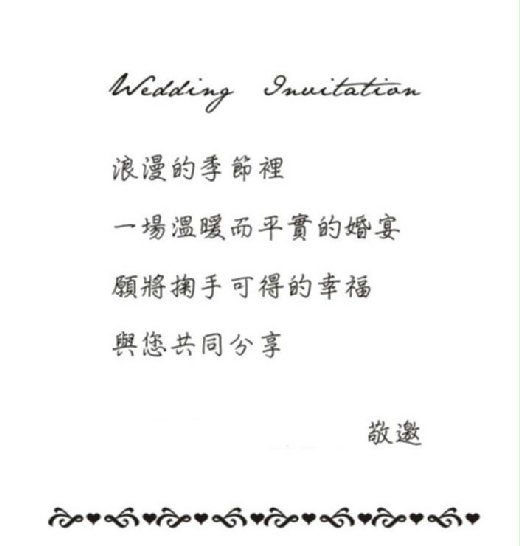 Wedding Invitation
浪漫的季節裡
一場溫暖而平實的婚宴
願將掬手可得的幸福
與您共同分享
敬邀